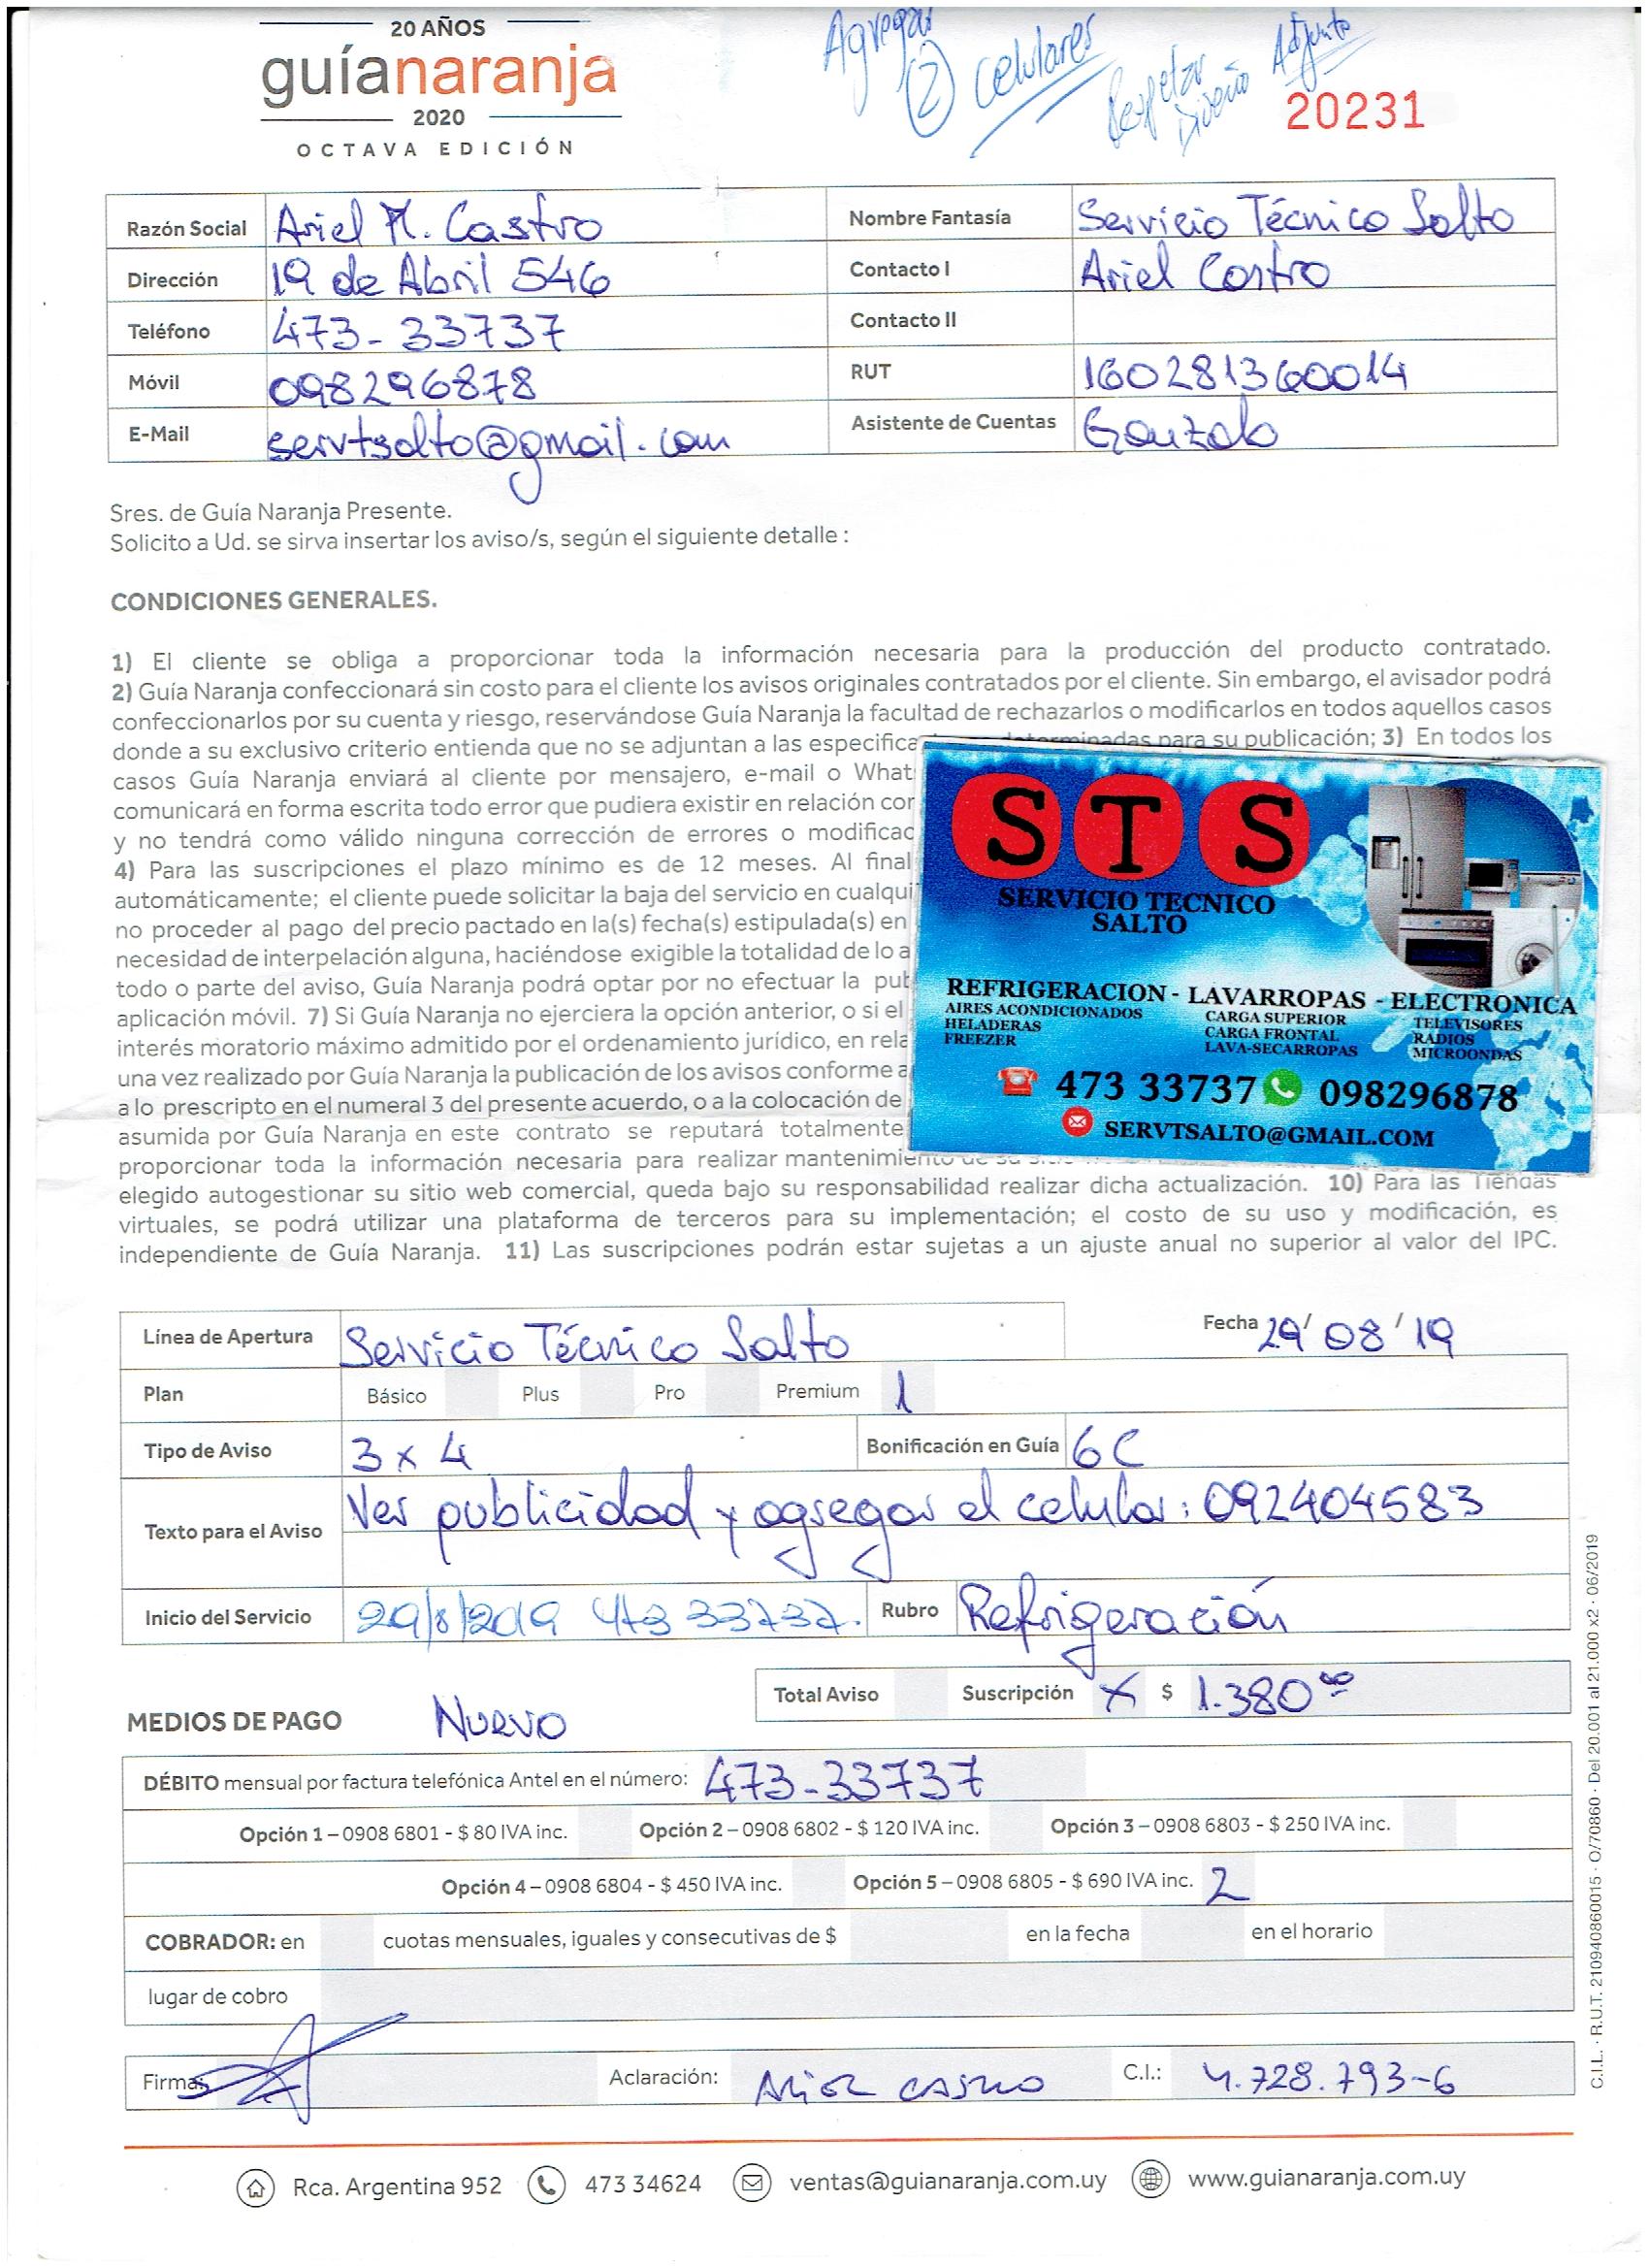 20 AÑOS
guíanaranja
2020
OCTAVA EDICIÓN
Agregar
(2) celulares
Respetar
Diseño
Adjunto
20231
Razón Social Ariel M. Castro
Nombre Fantasía Servicio Técnico Salto
Dirección 19 de Abril 546
Contacto I Ariel Castro
Teléfono 473-33737
Contacto II
Móvil 098296878
RUT 160281360014
E-Mail servtsalto@gmail.com
Asistente de Cuentas Gonzalo
Sres. de Guía Naranja Presente.
Solicito a Ud. se sirva insertar los aviso/s, según el siguiente detalle :
CONDICIONES GENERALES.
1) El cliente se obliga a proporcionar toda la información necesaria para la producción del producto contratado.
2) Guía Naranja confeccionará sin costo para el cliente los avisos originales contratados por el cliente. Sin embargo, el avisador podrá
confeccionarlos por su cuenta y riesgo, reservándose Guía Naranja la facultad de rechazarlos o modificarlos en todos aquellos casos
donde a su exclusivo criterio entienda que no se adjuntan a las especifica determinadas para su publicación; 3) En todos los
casos Guía Naranja enviará al cliente por mensajero, e-mail o What
comunicará en forma escrita todo error que pudiera existir en relación con
y no tendrá como válido ninguna corrección de errores o modificac
4) Para las suscripciones el plazo mínimo es de 12 meses. Al final
automáticamente; el cliente puede solicitar la baja del servicio en cualqui
no proceder al pago del precio pactado en la(s) fecha(s) estipulada(s) en
necesidad de interpelación alguna, haciéndose exigible la totalidad de lo a
todo o parte del aviso, Guía Naranja podrá optar por no efectuar la pub
aplicación móvil. 7) Si Guía Naranja no ejerciera la opción anterior, o si el
interés moratorio máximo admitido por el ordenamiento jurídico, en rela
una vez realizado por Guía Naranja la publicación de los avisos conforme a
a lo prescripto en el numeral 3 del presente acuerdo, o a la colocación de
asumida por Guía Naranja en este contrato se reputará totalmente
proporcionar toda la información necesaria para realizar mantenimiento de su sitio
elegido autogestionar su sitio web comercial, queda bajo su responsabilidad realizar dicha actualización. 10) Para las Tiendas
virtuales, se podrá utilizar una plataforma de terceros para su implementación; el costo de su uso y modificación, es
independiente de Guía Naranja. 11) Las suscripciones podrán estar sujetas a un ajuste anual no superior al valor del IPC.
STS
SERVICIO TECNICO
SALTO
REFRIGERACION - LAVARROPAS - ELECTRONICA
AIRES ACONDICIONADOS CARGA SUPERIOR TELEVISORES
HELADERAS CARGA FRONTAL RADIOS
FREEZER LAVA-SECARROPAS MICROONDAS
473 33737 098296878
SERVTSALTO@GMAIL.COM
Línea de Apertura Servicio Técnico Salto
Fecha 29/ 08 / 19
Plan Básico Plus Pro Premium 1
Tipo de Aviso 3 x 4 Bonificación en Guía 6C
Texto para el Aviso Ver publicidad y agregar el celular: 092404583
Inicio del Servicio 29/8/2019 473 33737. Rubro Refrigeración
Total Aviso Suscripción X $ 1.380 00
MEDIOS DE PAGO Nuevo
DÉBITO mensual por factura telefónica Antel en el número: 473-33737
Opción 1 – 0908 6801 - $ 80 IVA inc. Opción 2 – 0908 6802 - $ 120 IVA inc. Opción 3 – 0908 6803 - $ 250 IVA inc.
Opción 4 – 0908 6804 - $ 450 IVA inc. Opción 5 – 0908 6805 - $ 690 IVA inc. 2
COBRADOR: en cuotas mensuales, iguales y consecutivas de $ en la fecha en el horario
lugar de cobro
Firma: Aclaración: Ariel Castro C.I.: 4.728.793-6
Rca. Argentina 952 473 34624 ventas@guianaranja.com.uy www.guianaranja.com.uy
C.I.L. · R.U.T. 210940860015 · O/70860 · Del 20.001 al 21.000 x2 · 06/2019